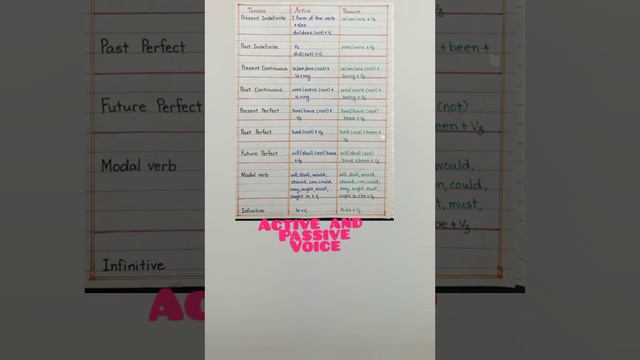 Tenses Active Passive
Present Indefinite I form of the verb is/am/are + V3
+ s/es
do/does (not) + V1
Past Indefinite V2 was/were + V3
did (not) + V1
Present Continuous is/am/are (not) + is/am/are (not) +
V1 + ing being + V3
Past Continuous was/were (not) + was/were (not) +
V1 + ing being + V3
Present Perfect has/have (not) + has/have (not)
V3 been + V3
Past Perfect had (not) + V3 had (not) + been +
V3
Future Perfect will/shall (not) have will/shall (not)
+ V3 have + been + V3
Modal verb will, shall, would, will, shall, would,
should, can, could, should, can, could,
may, ought, must, may, ought, must,
ought to + V1 ought to + be + V3
Infinitive to + V1 to be + V3
Active and
Passive
Voice
Past Perfect
Future Perfect
Modal verb
Infinitive
+ been +
(not)
een + V3
would,
n, could,
t, must,
be + V3